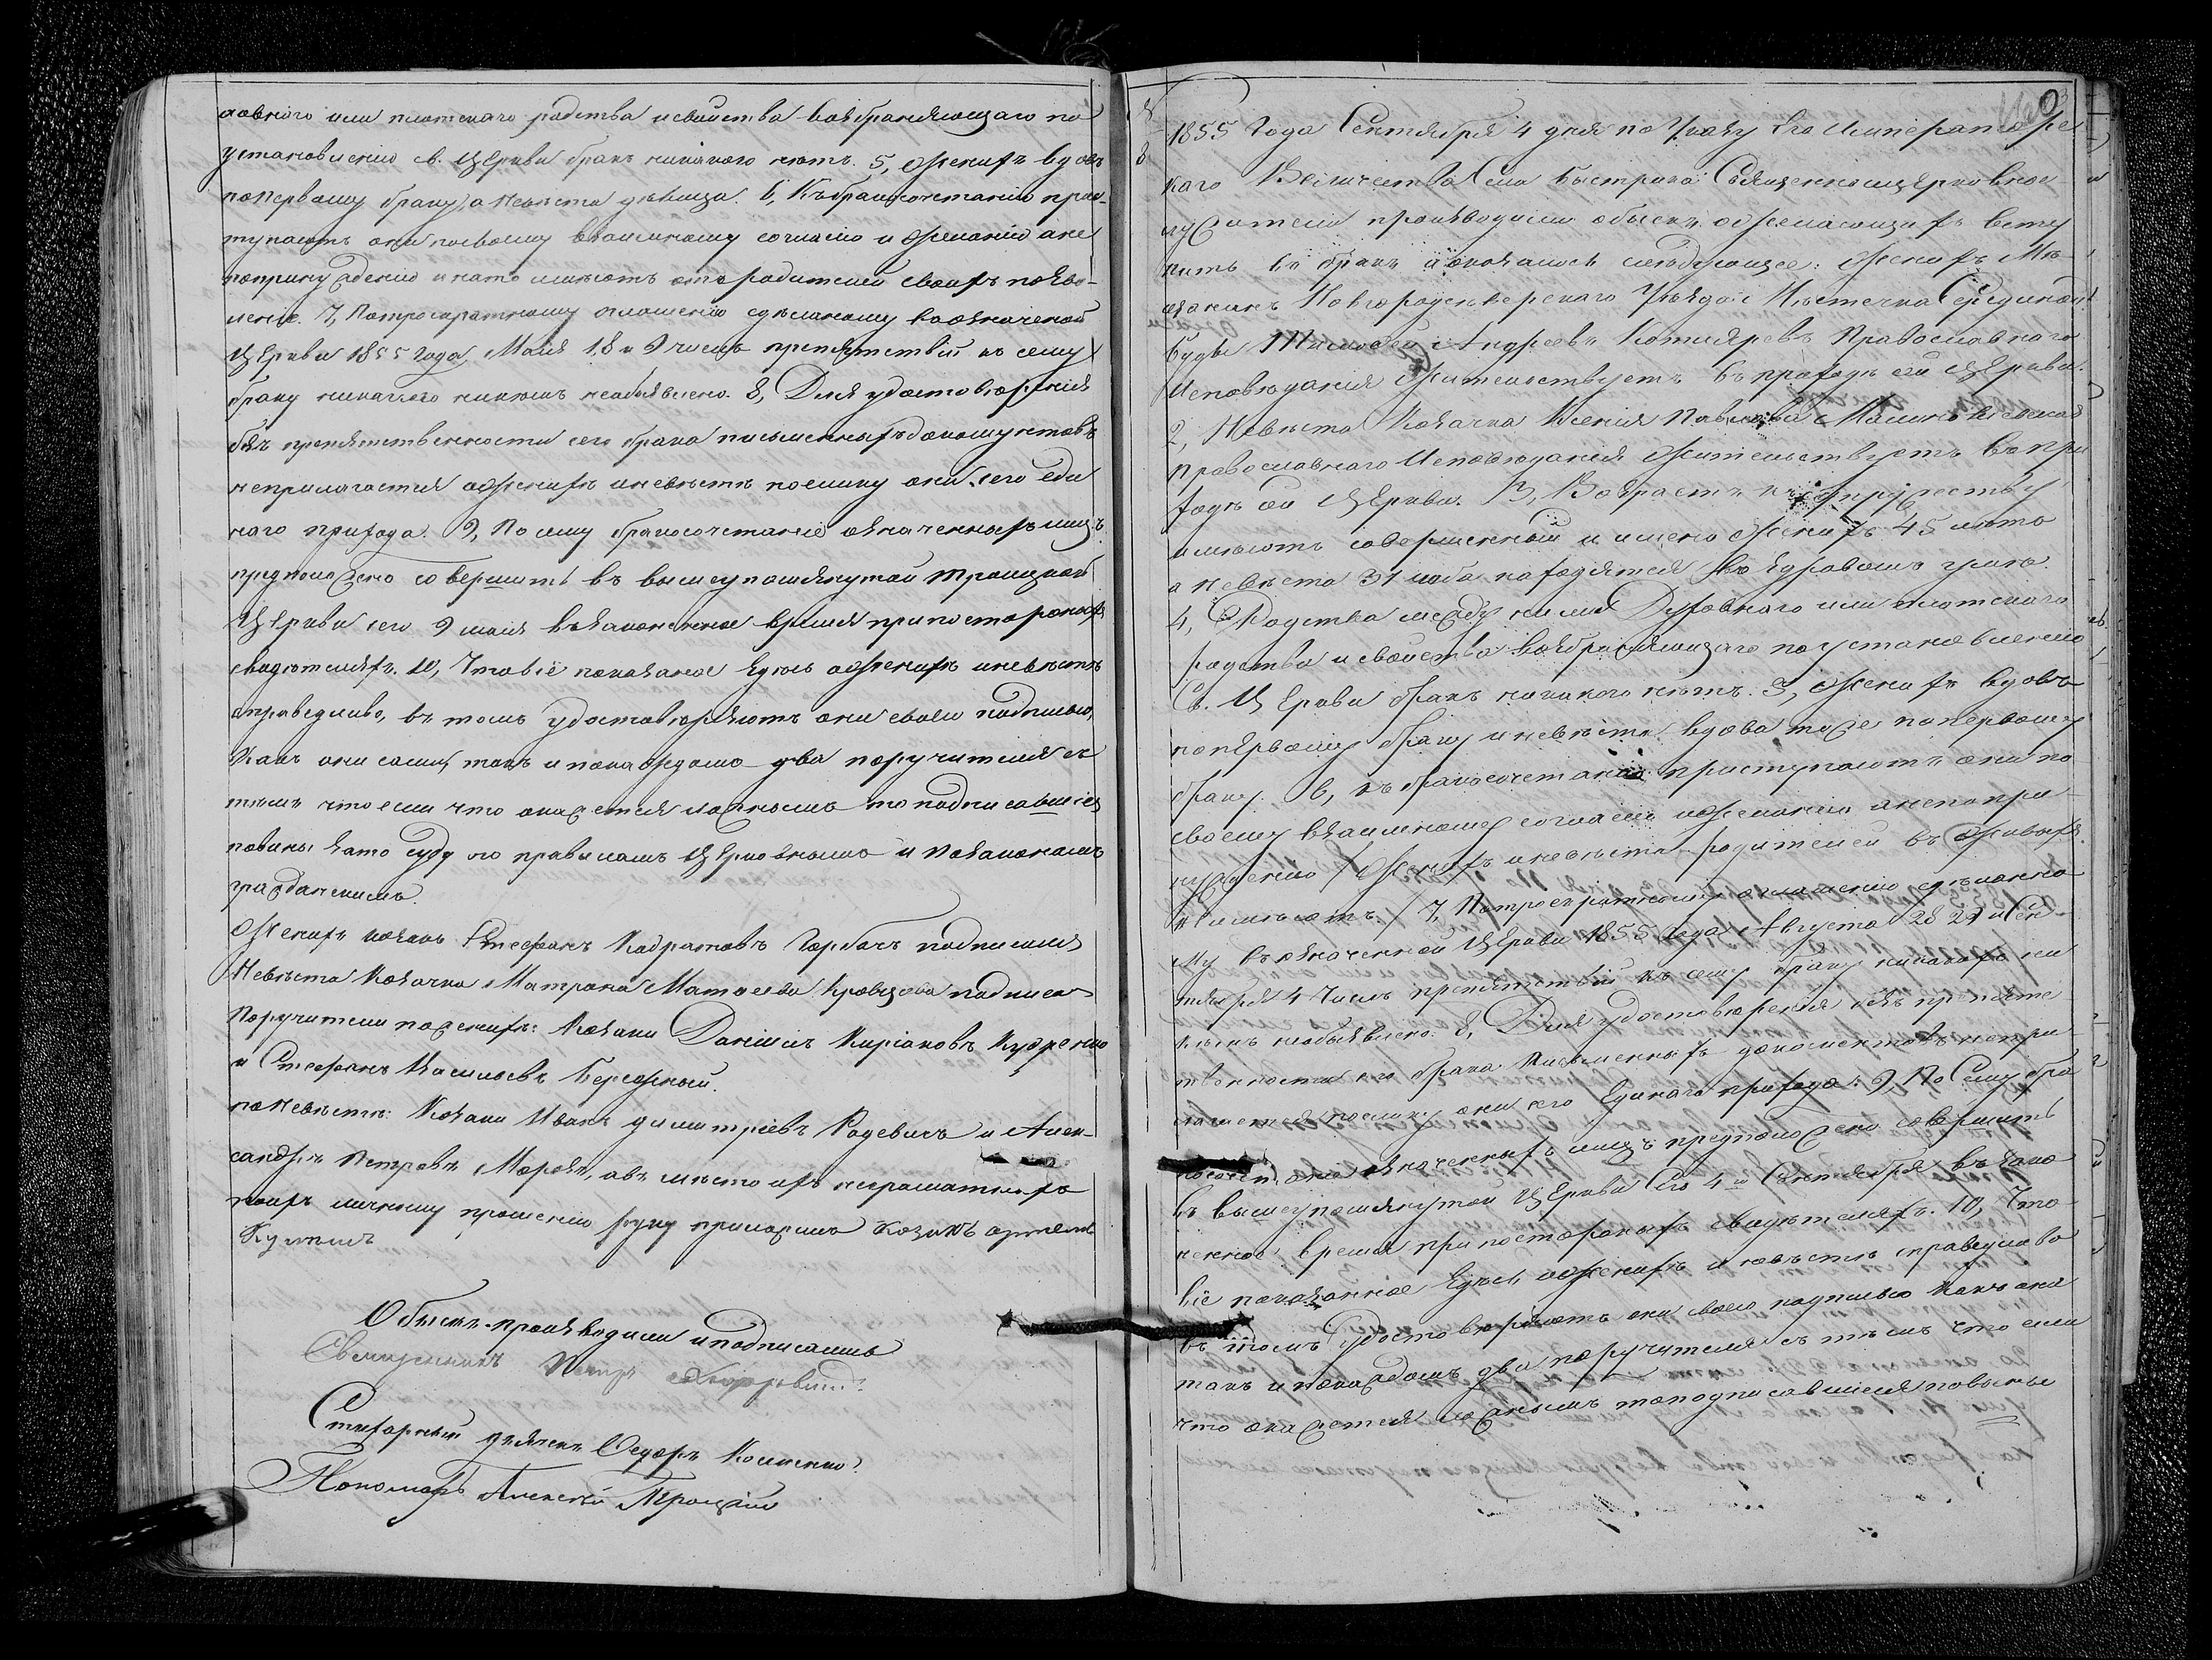 ховного или плотскаго родства и свойства возбраняющаго по
установленію св. Церкви бракъ никакого нѣтъ. 5, Женихъ вдовъ
поперьвому браку, а Невѣста дѣвица. 6, Къ бракосочетанію прис-
тупаютъ они посвоему взаимному согласію и желанію ане
попринужденію и нато имѣютъ отъ родителей своихъ позво-
леніе. 7, Потроекратному оглашенію сдѣланому въ означеной
Церкви 1855 года, Маія 1, 8 и 9 числъ препятствій къ сему
браку никакого никѣмъ необъявлено. 8, Для удостовѣренія
безъ препятственности сего брака письменныхъ докомунтовъ
неприлагается ожених и невѣстѣ поелику они сего еди
наго прихода. 9, По сему бракосочетаніе означенныхъ лицъ
предположено совершить въ вышеупомянутой Троицкой
Церкви сего 9 маія въ законенное время при постороныхъ
свидѣтеляхъ. 10, Что всіе показаное здѣсь оженихѣ и невѣстѣ
справедливо, въ томъ удостовѣряютъ они своею подписью,
какъ они сами, такъ и по каждому два поручителя съ
тѣмъ что если что окажется ложнымъ то подписавшіеся
повины зато суду по правиламъ Церковнымъ и по законамъ
гражданскимъ.
Женихъ козакъ Стефанъ Кодратовъ Горбачъ подписался
Невѣста Козачка Матрона Матвеева Кравцова подписа
Поручители по женихѣ: Козаки Даніилъ Киріаковъ Кудренко
и Стефанъ Василіевъ Бережный.
по Невѣстѣ: Козаки Иванъ Димитріевъ Радевичъ и Алек-
сандръ Петровъ Морозъ, авъ мѣсто ихъ неграматныхъ
поихъ личному прошенію руку приложилъ козакъ
Обыскъ производили и подписали
Священникъ Петръ
Стихарный дьячекъ Федоръ
Пономарь Алексѣй Троцкій
1855 Года Сентября 4 дня по Указу Его Императорс
каго Величества Села Быстрика Священноцерковнос
лужители производили обыскъ ожелающихъ всту
пить въ бракъ и оказалось слѣдующее: Женихъ Мѣ-
щанинъ Новгородсѣверскаго Уѣзда Мѣстечка Серединой
Буды Тимофей Андреевъ Котляревъ Православнаго
Исповѣданія жительствуетъ въ приходѣ сей Церкви.
2, Невѣста Козачка Ксенія Павлова
Православнаго Исповѣданія жительствуетъ въ при
ходѣ сей Церкви. 3, Возрастъ къ супружеству
имѣютъ совершенный и имено женихъ 45 лѣтъ
а невѣста 31 и оба находятся въ здравомъ
4, Родства между ними Духовнаго или плотскаго
родства и свойства возбраняющаго по установленію
Св. Церкви бракъ никакого нѣтъ. 5, Женихъ вдовъ
поперьвому браку и невѣста вдова тоже поперьвому
браку. 6, къ бракосочетанію приступаютъ они по
своему взаимному согласію и желанію анепопри-
нужденію / Женихъ и невѣста родителей въ живыхъ
неимѣютъ. / 7, Потроекратному оглашенію сдѣланно
му въ означенной Церкви 1855 года Августа 28 29 и Сен-
тября 4 Числъ препятствій къ сему браку никакого ни
кѣмъ необъявлено. 8, Для удостовѣренія безъ препятс
твѣнности сего брака Письменныхъ докоментовъ непри
лагается поелику они сего Единаго прихода. 9, По Сему бра
косочетаніе означенныхъ лицъ предположено совершить
въ вышеупомянутой Церкви Сего 4 Сентября въ зако
ненное время при постороныхъ свидѣтеляхъ. 10, Что
всіе показанное здѣсь оженихѣ и невѣстѣ справедливо
въ томъ удостовѣряютъ они своею подписью какъ они
такъ и по каждомъ два поручителя съ тѣмъ что если
что окажется ложнымъ то подписавшіеся повины